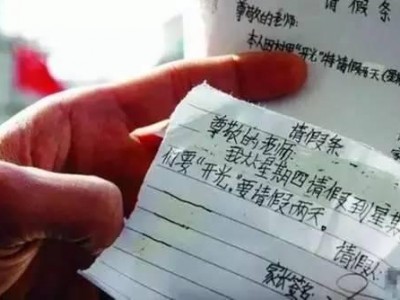 请假条
尊敬的老师:
本人因村里"开光"特请假两天(星
请假条
尊敬的老师:
我从星期四请假到星期
们要"开光"要请假两天。
请假人:
家长签名: